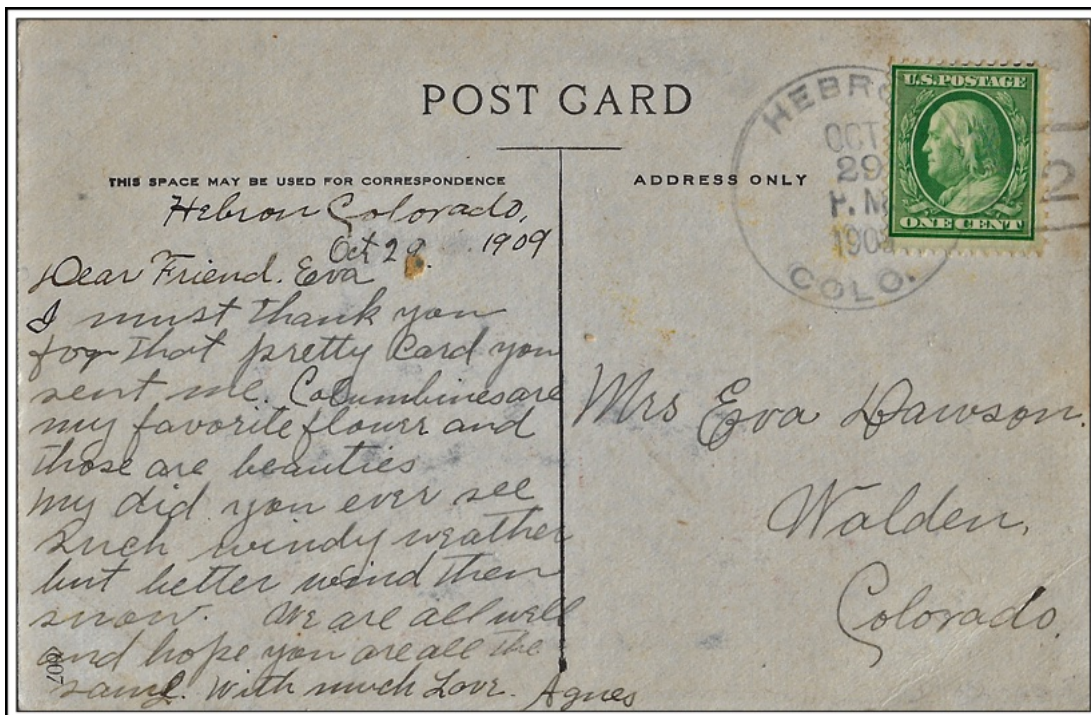 POST CARD
THIS SPACE MAY BE USED FOR CORRESPONDENCE
Hebron Colorado,
Oct 28 1909
Dear Friend. Eva
I must thank you
for that pretty Card you
sent me. Columbines are
my favorite flower and
those are beauties
my did you ever see
such windy weather
but better wind then
snow. We are all well
and hope you are all the
same. With much Love. Agnes
607
ADDRESS ONLY
HEBRO
OCT
29
P.M
190
COLO.
U.S. POSTAGE
ONE CENT
2
Mrs Eva Dawson.
Walden,
Colorado.